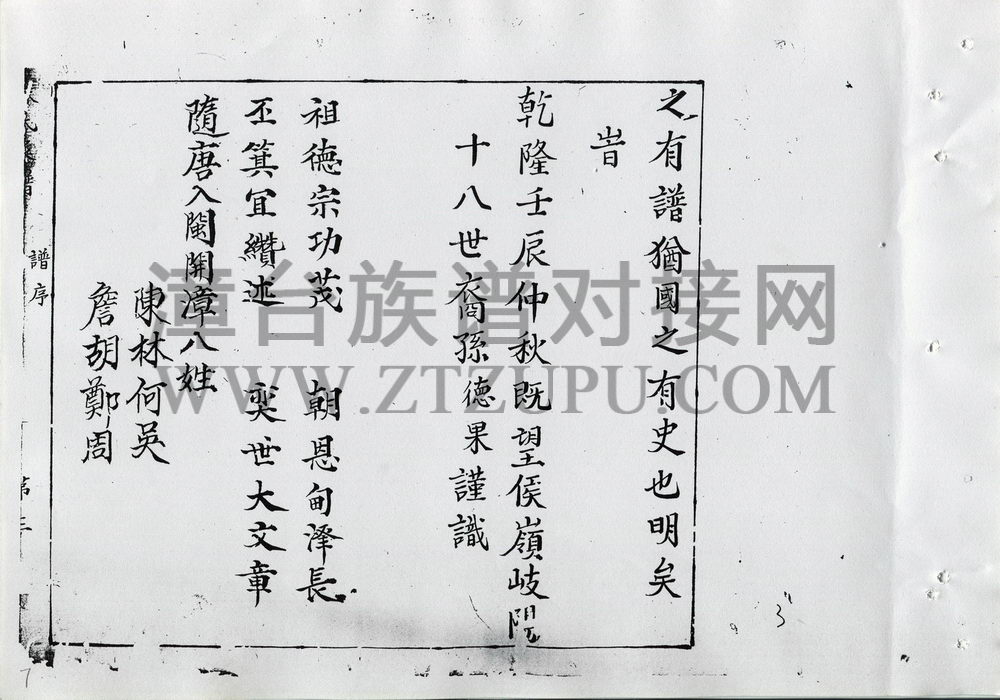 之有譜猶國之有史也明矣
旹
乾隆壬辰仲秋既望侯嶺岐陽
十八世裔孫德果謹識
祖德宗功茂 朝恩甸澤長
丕箕宜纘述 奕世大文章
隨唐入閩開漳八姓
陳林何吳
詹胡鄭周
譜序
漳台族谱对接网
WWW.ZTZUPU.COM
3
7